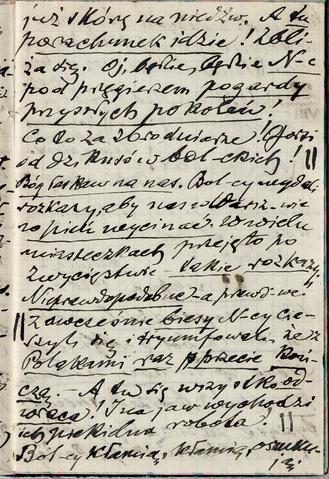 już skórę na niedźw. A tu
porachunek idzie! Zbli-
ża się. Oj, będzie, będzie N-c
pod pręgierzem pogardy
przyszłych pokoleń!
Co to za zbrodniarze! Gorsi
od dzikusów bol-ckich! ||
Bóg łaskaw na nas. Bol-cy wydali
rozkazy, aby nas
w pień wycinać. W wielu
miasteczkach przejęto po
zwycięstwie takie rozkazy.
Nieprawdopodobne a prawdziwe
|| Za wcześnie biesy N-cy cie-
szyli się i tryumfowali, że z
Polakami raz przecie koń-
czą. – A tu się wszystko od-
wraca! I na jaw wychodzi
ich piekielna robota! ||
Bol-cy kłamią, kłamią, oszuku-
ją